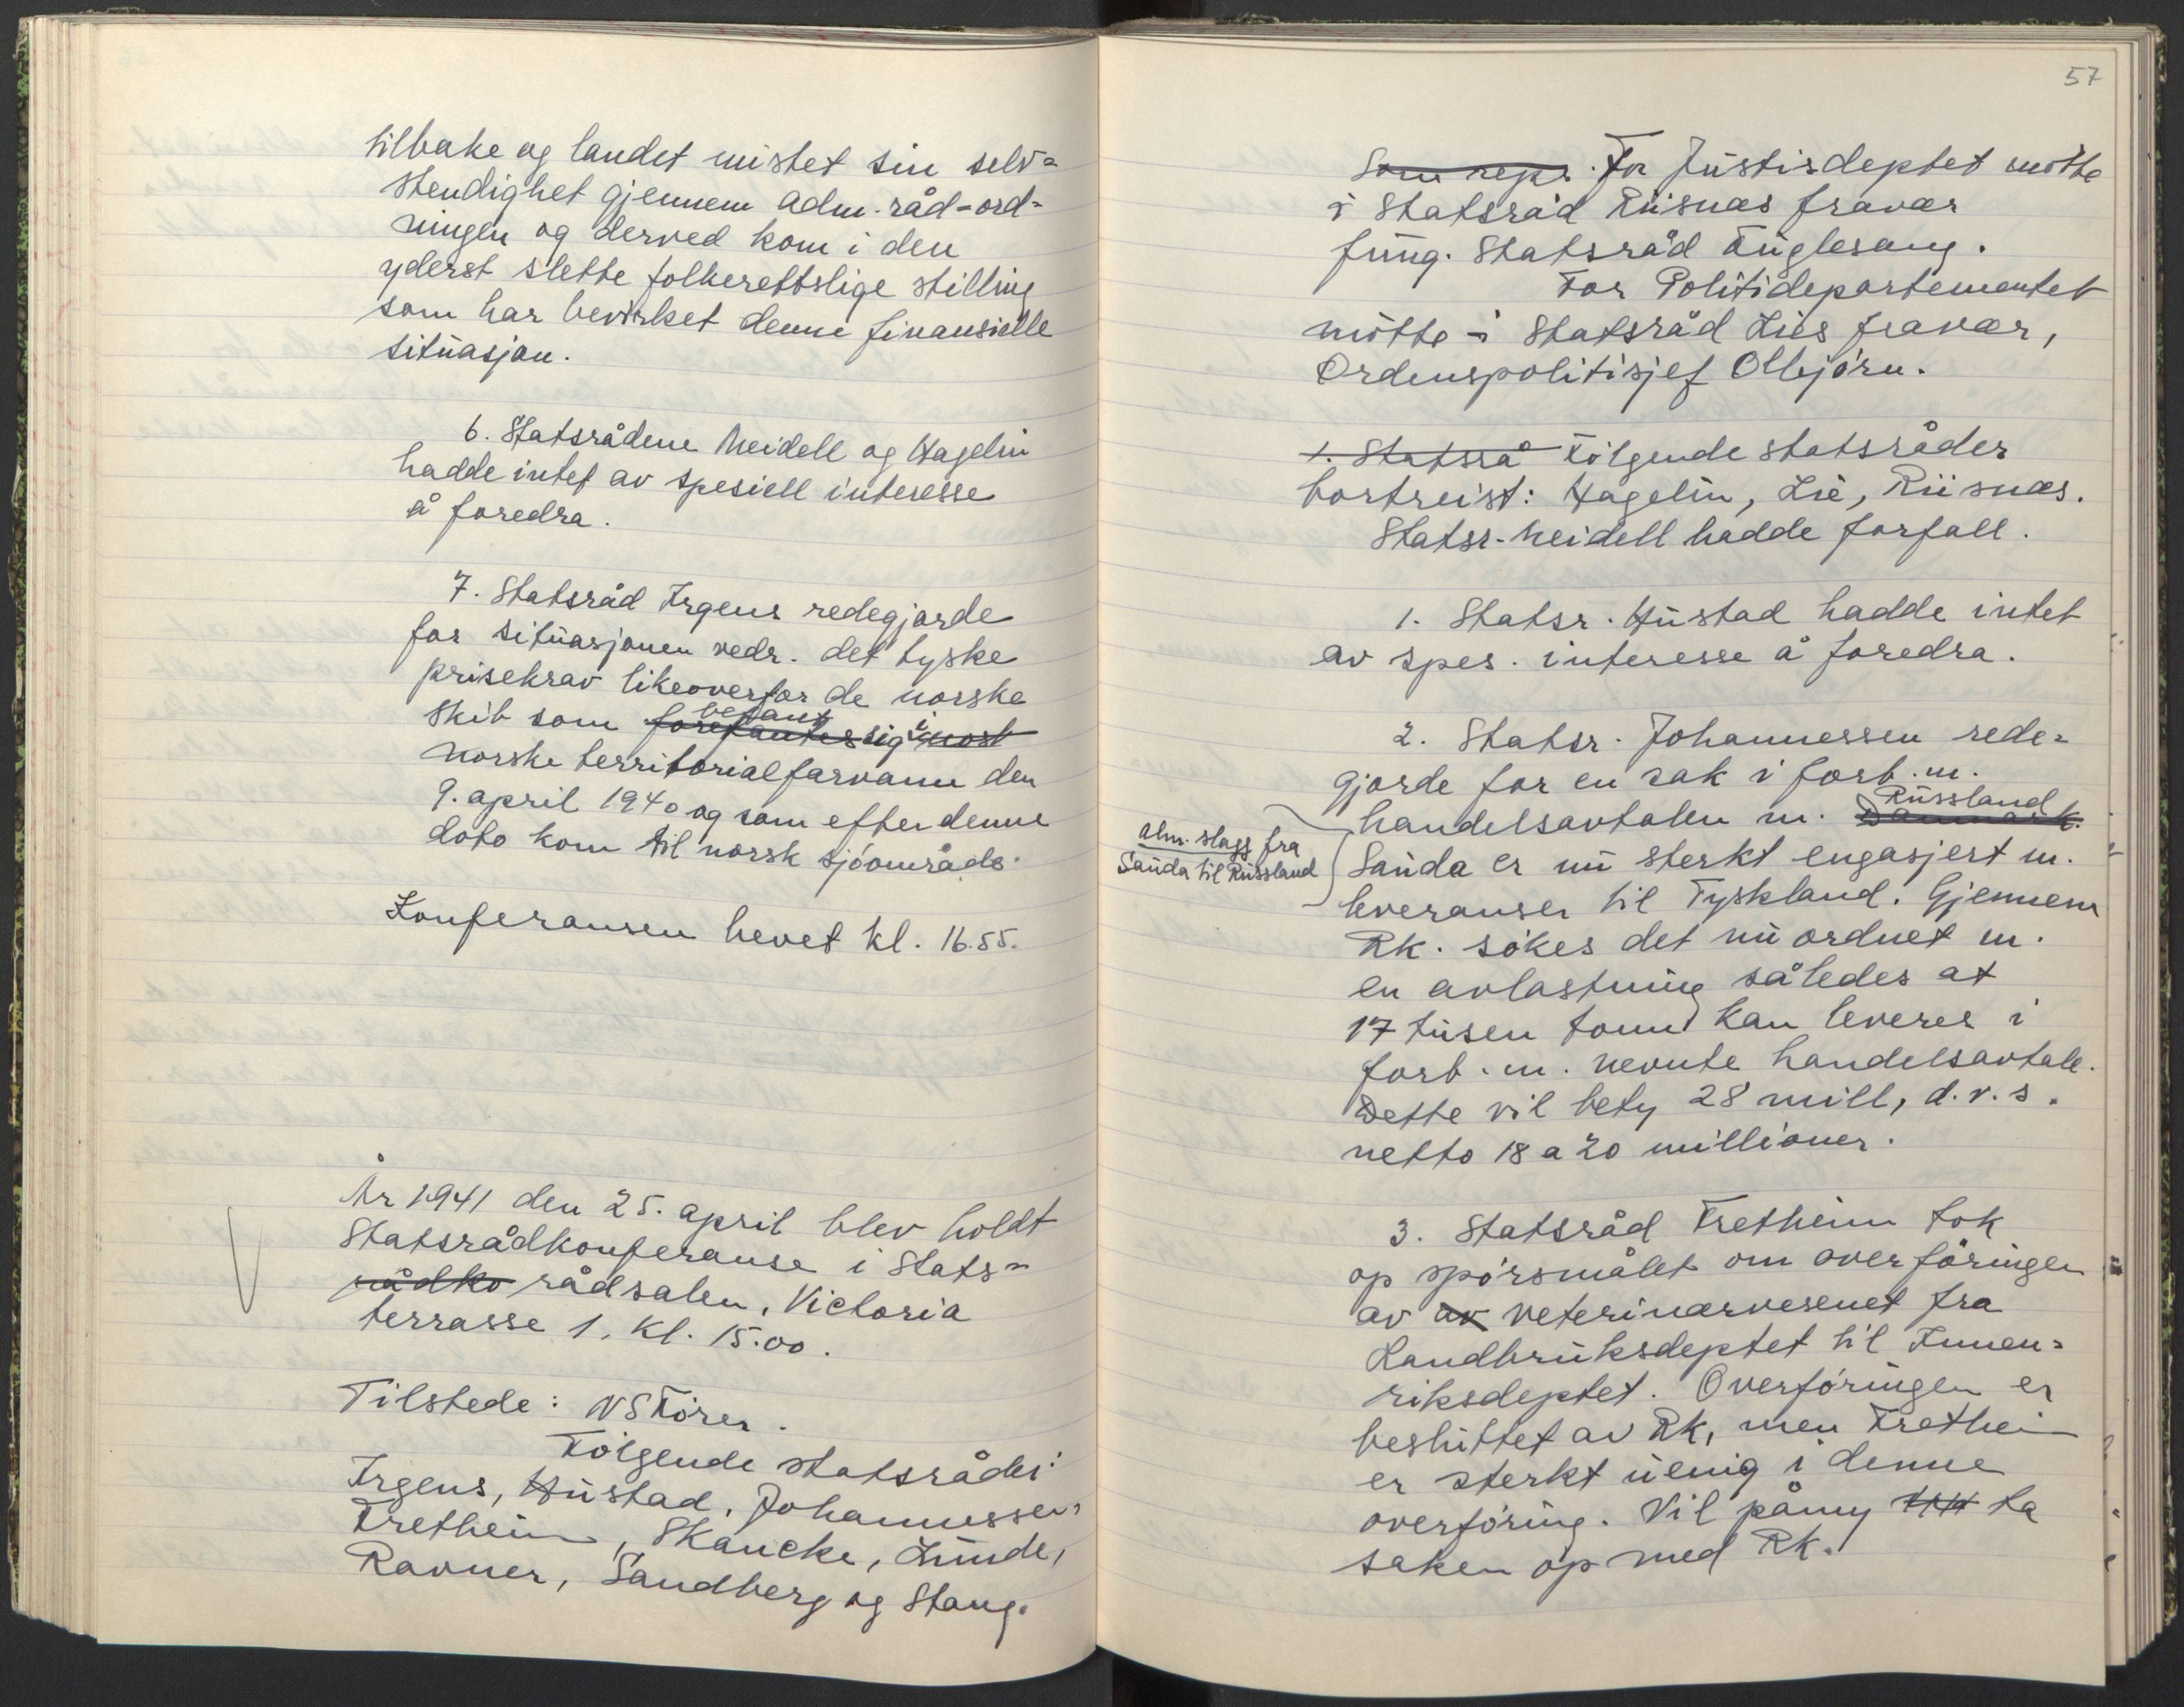 tilbake og landet mistet sin selv=
stendighet gjennem Adm.råd-ord=
ningen og derved kom i den
yderst slette folkerettslige stilling
som har bevirket denne finansielle
situasjon.
6. Statsrådene Meidell og Hagelin
hadde intet av spesiell interesse
å foredra.
7. Statsråd Irgens redegjorde
for situasjonen vedr. det tyske
prisekrav likeoverfor de norske
befant
skib som forefantes sig i norsk
norske territorialfarvann den
9. april 1940 og som efter denne
dato kom til norsk sjöområde.
Konferansen hevet kl. 16.55.
År 1941 den 25. april blev holdt
Statsrådkonferanse i Stats=
rådko rådsalen, Victoria
terrasse 1, kl. 15.00.
Tilstede: NS Förer.
Fölgende statsråder:
Irgens, Hustad, Johannessen,
Fretheim, Skancke, Lunde,
Ravner, Sandberg og Stang.
57
Som repr. For Justisdeptet mötte
i Statsråd Riisnæs fravær
fung. Statsråd Fuglesang.
For Politidepartementet
mötte i Statsråd Lies fravær,
Ordenspolitisjef Olbjörn.
1. Statsrå Fölgende statsråder
bortreist: Hagelin, Lie, Riisnæs.
Statsr. Meidell hadde forfall.
1. Statsr. Hustad hadde intet
av spes. interesse å foredra.
2. Statsr. Johannessen rede=
gjorde for en sak i forb. m.
Russland
handelsavtalen m. Danmark.
alm. slagg fra
Sauda til Russland
Sauda er nu sterkt engasjert m.
leveranser til Tyskland. Gjennem
RK. sökes det nu ordnet m.
en avlastning således at
17 tusen tonn kan leveres i
forb. m. nevnte handelsavtale.
Dette vil bety 28 mill, d.v.s.
netto 18 a 20 millioner.
3. Statsråd Fretheim tok
op spörsmålet om overföringen
av av veterinærvesenet fra
Landbruksdeptet til Innen=
riksdeptet. Overföringen er
besluttet av RK, men Fretheim
er sterkt uenig i denne
overföring. Vil påny ta
saken op med RK.